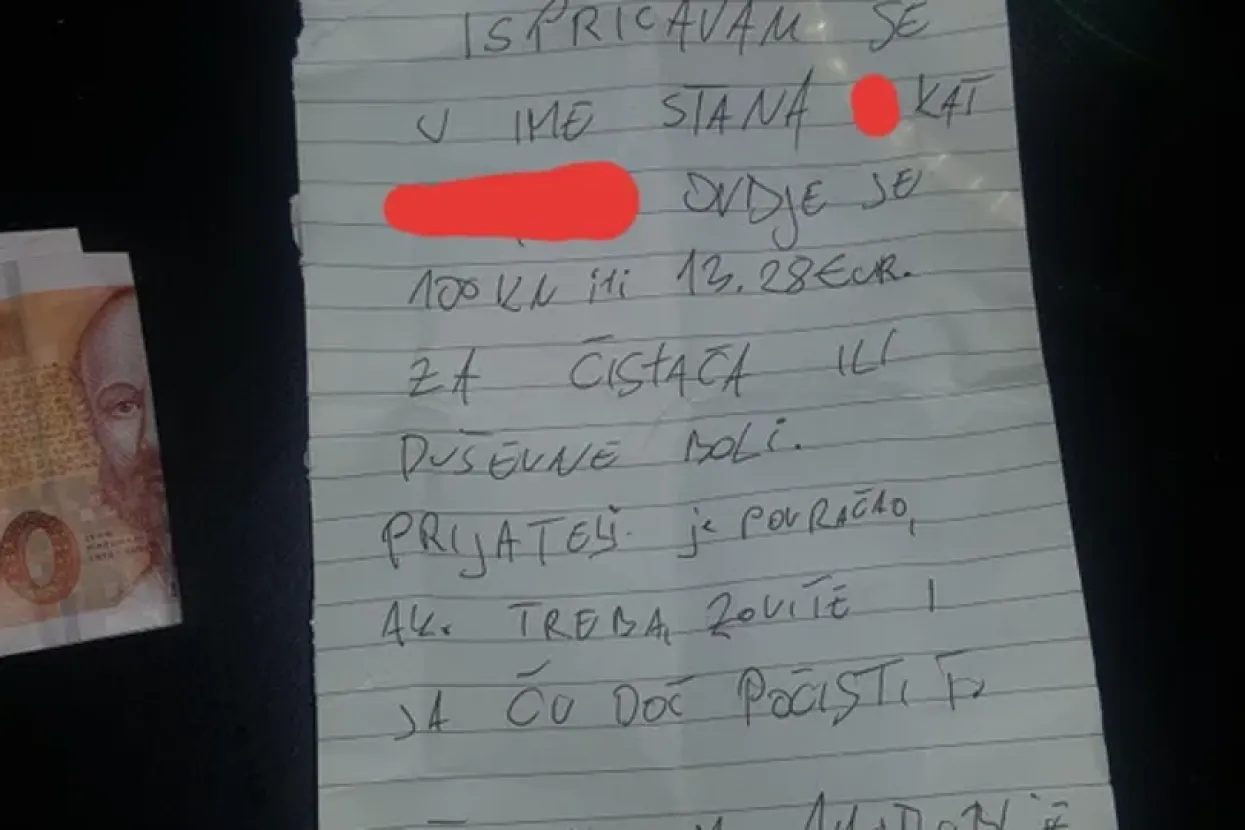 ISPRIČAVAM SE
U IME STANA KAT
OVDJE JE
100 KN ili 13.28 EUR.
ZA ČISTAČA ILI
DUŠEVNE BOLI.
PRIJATELJ je POVRAĆAO,
AK. TREBA, ZOVITE I
JA ĆU DOĆ POČISTIT
0